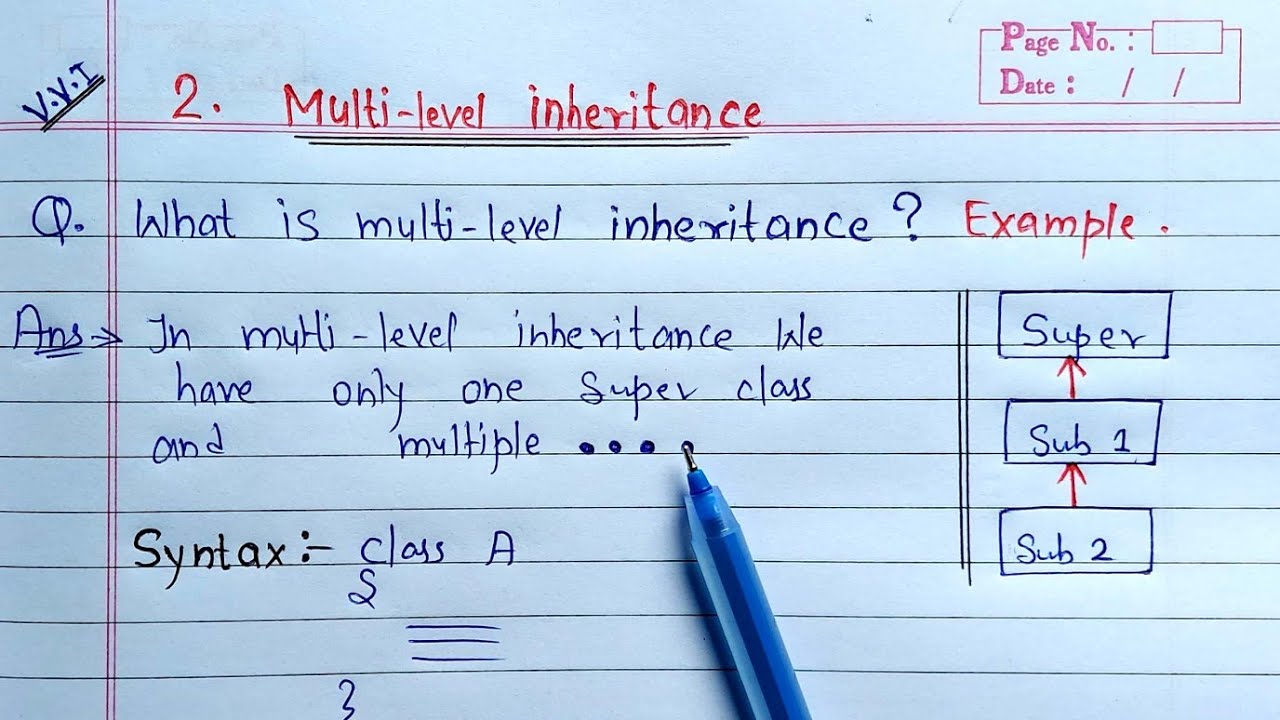 Page No. :
Date : / /
V.V.I
2. Multi-level inheritance
Q. What is multi-level inheritance? Example.
Ans → In multi-level inheritance We
have only one Super class
and multiple ....
Syntax :- class A
{
}
Super
Sub 1
Sub 2